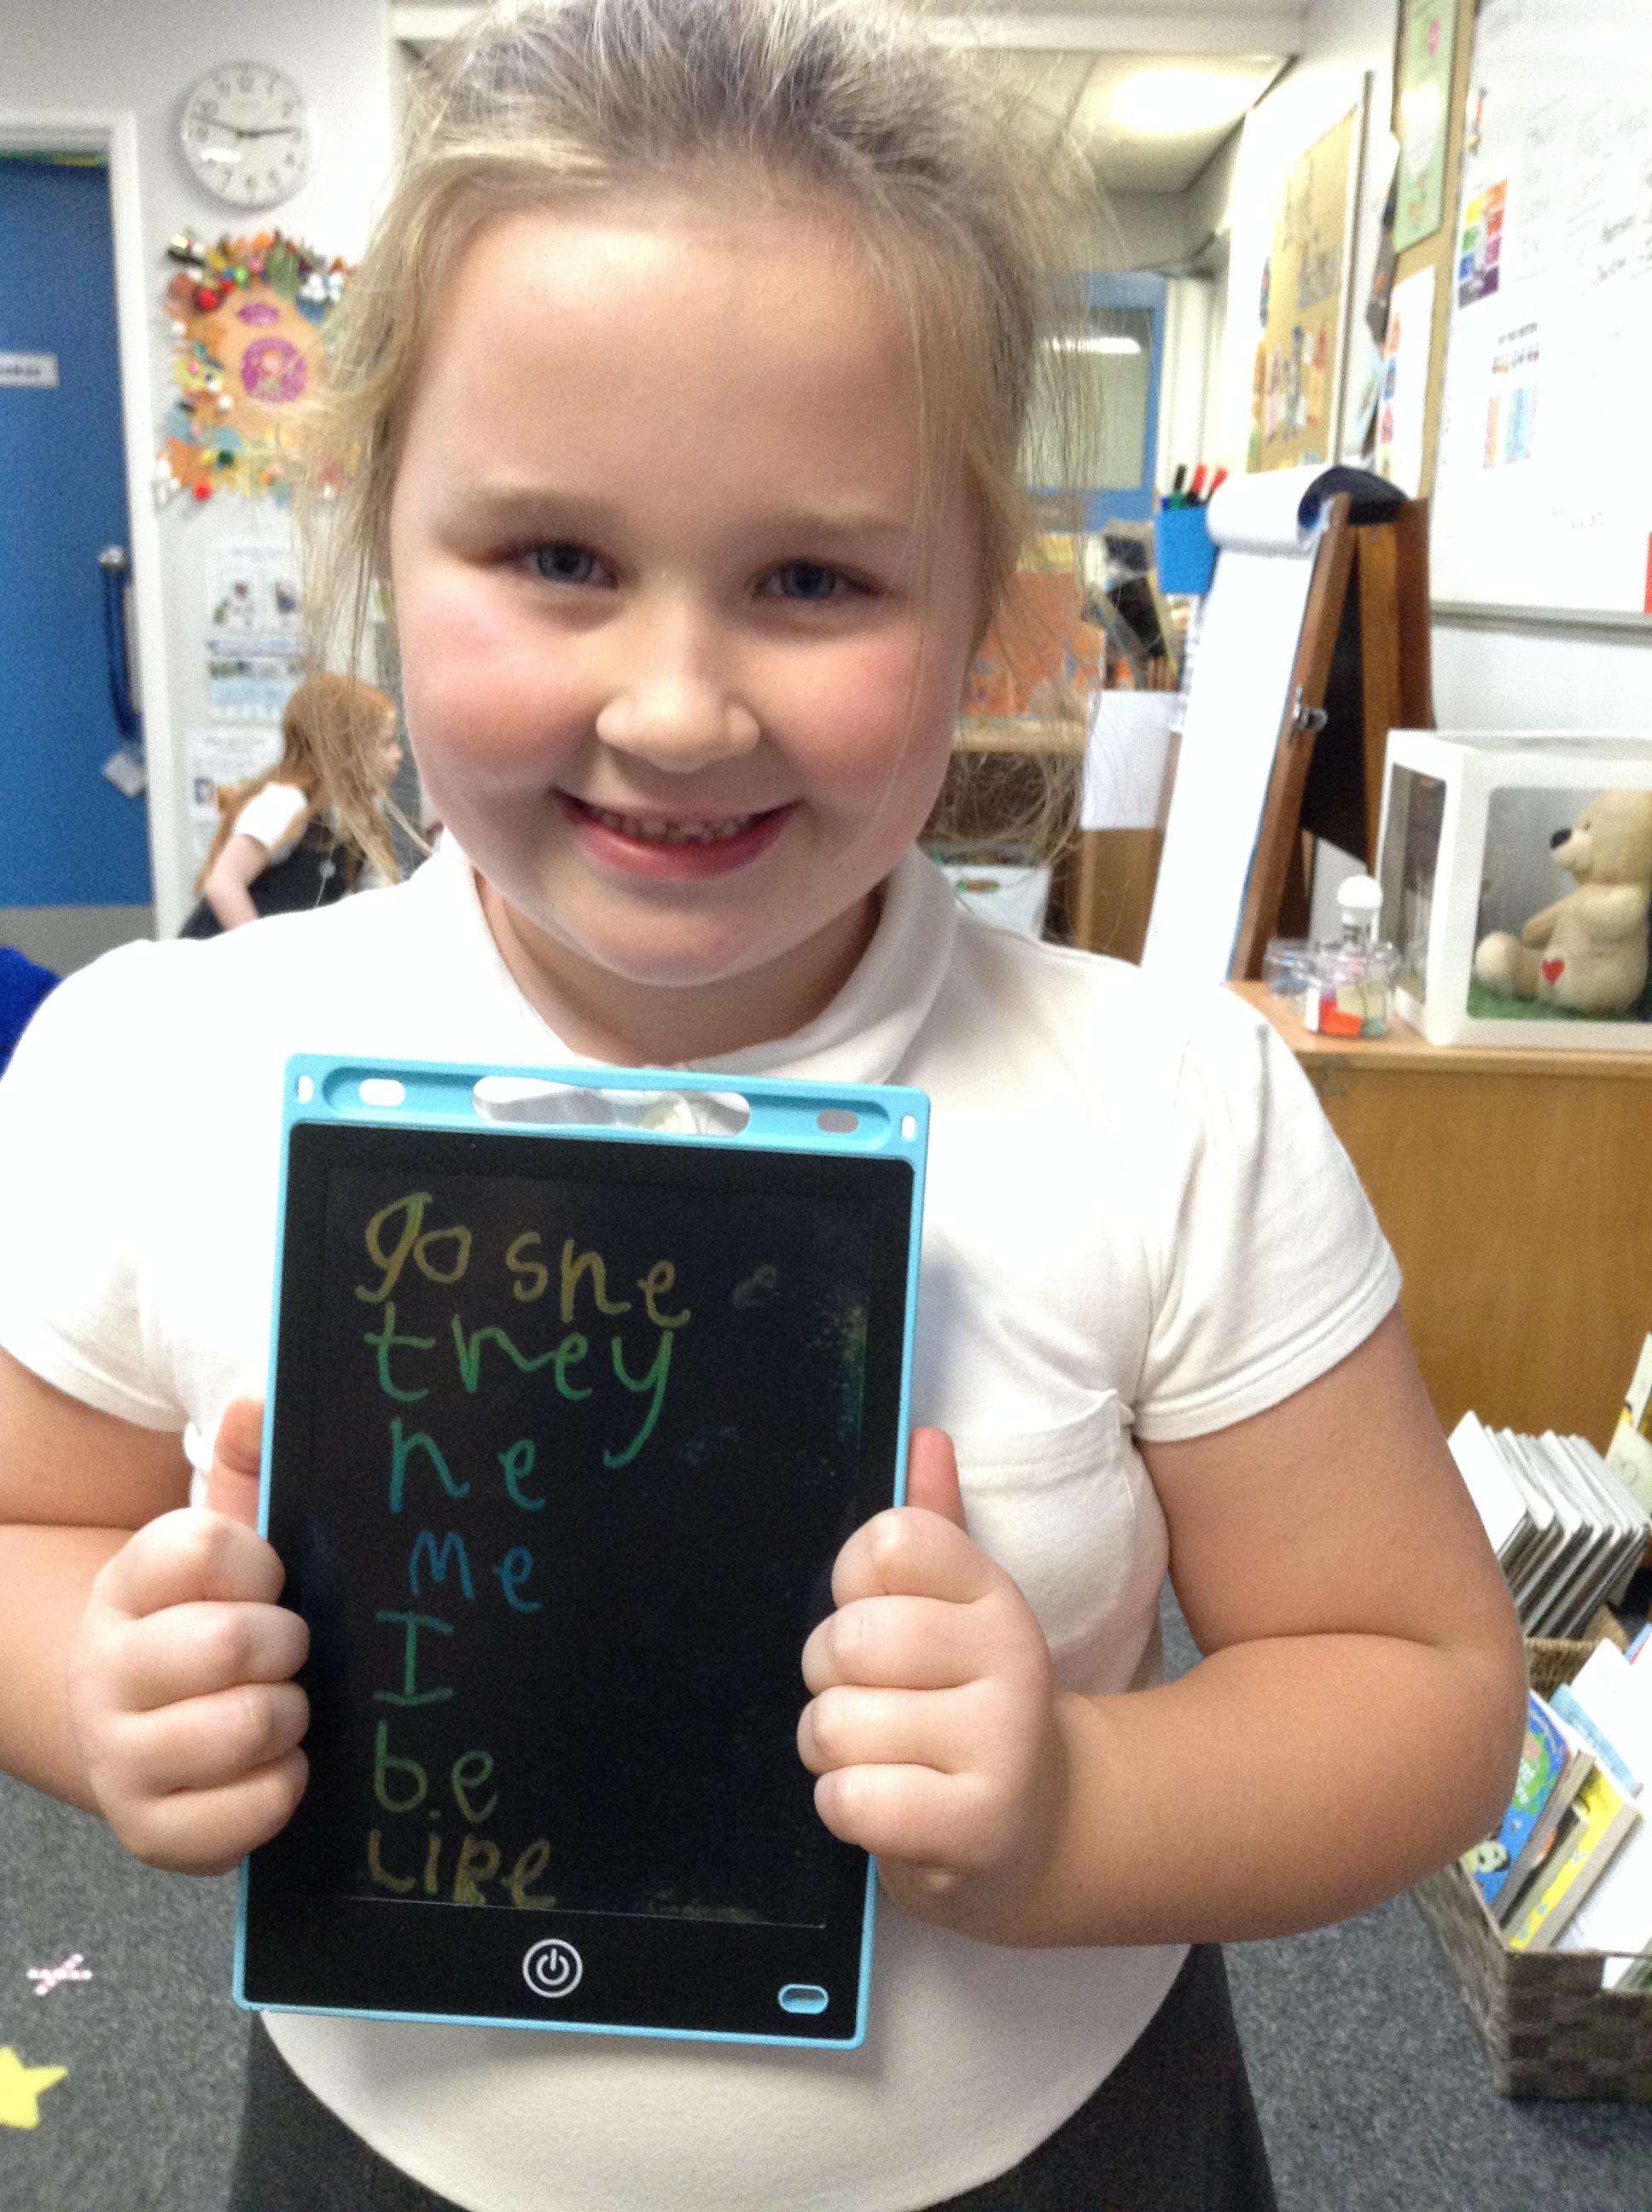 go she
they
he
me
I
be
like